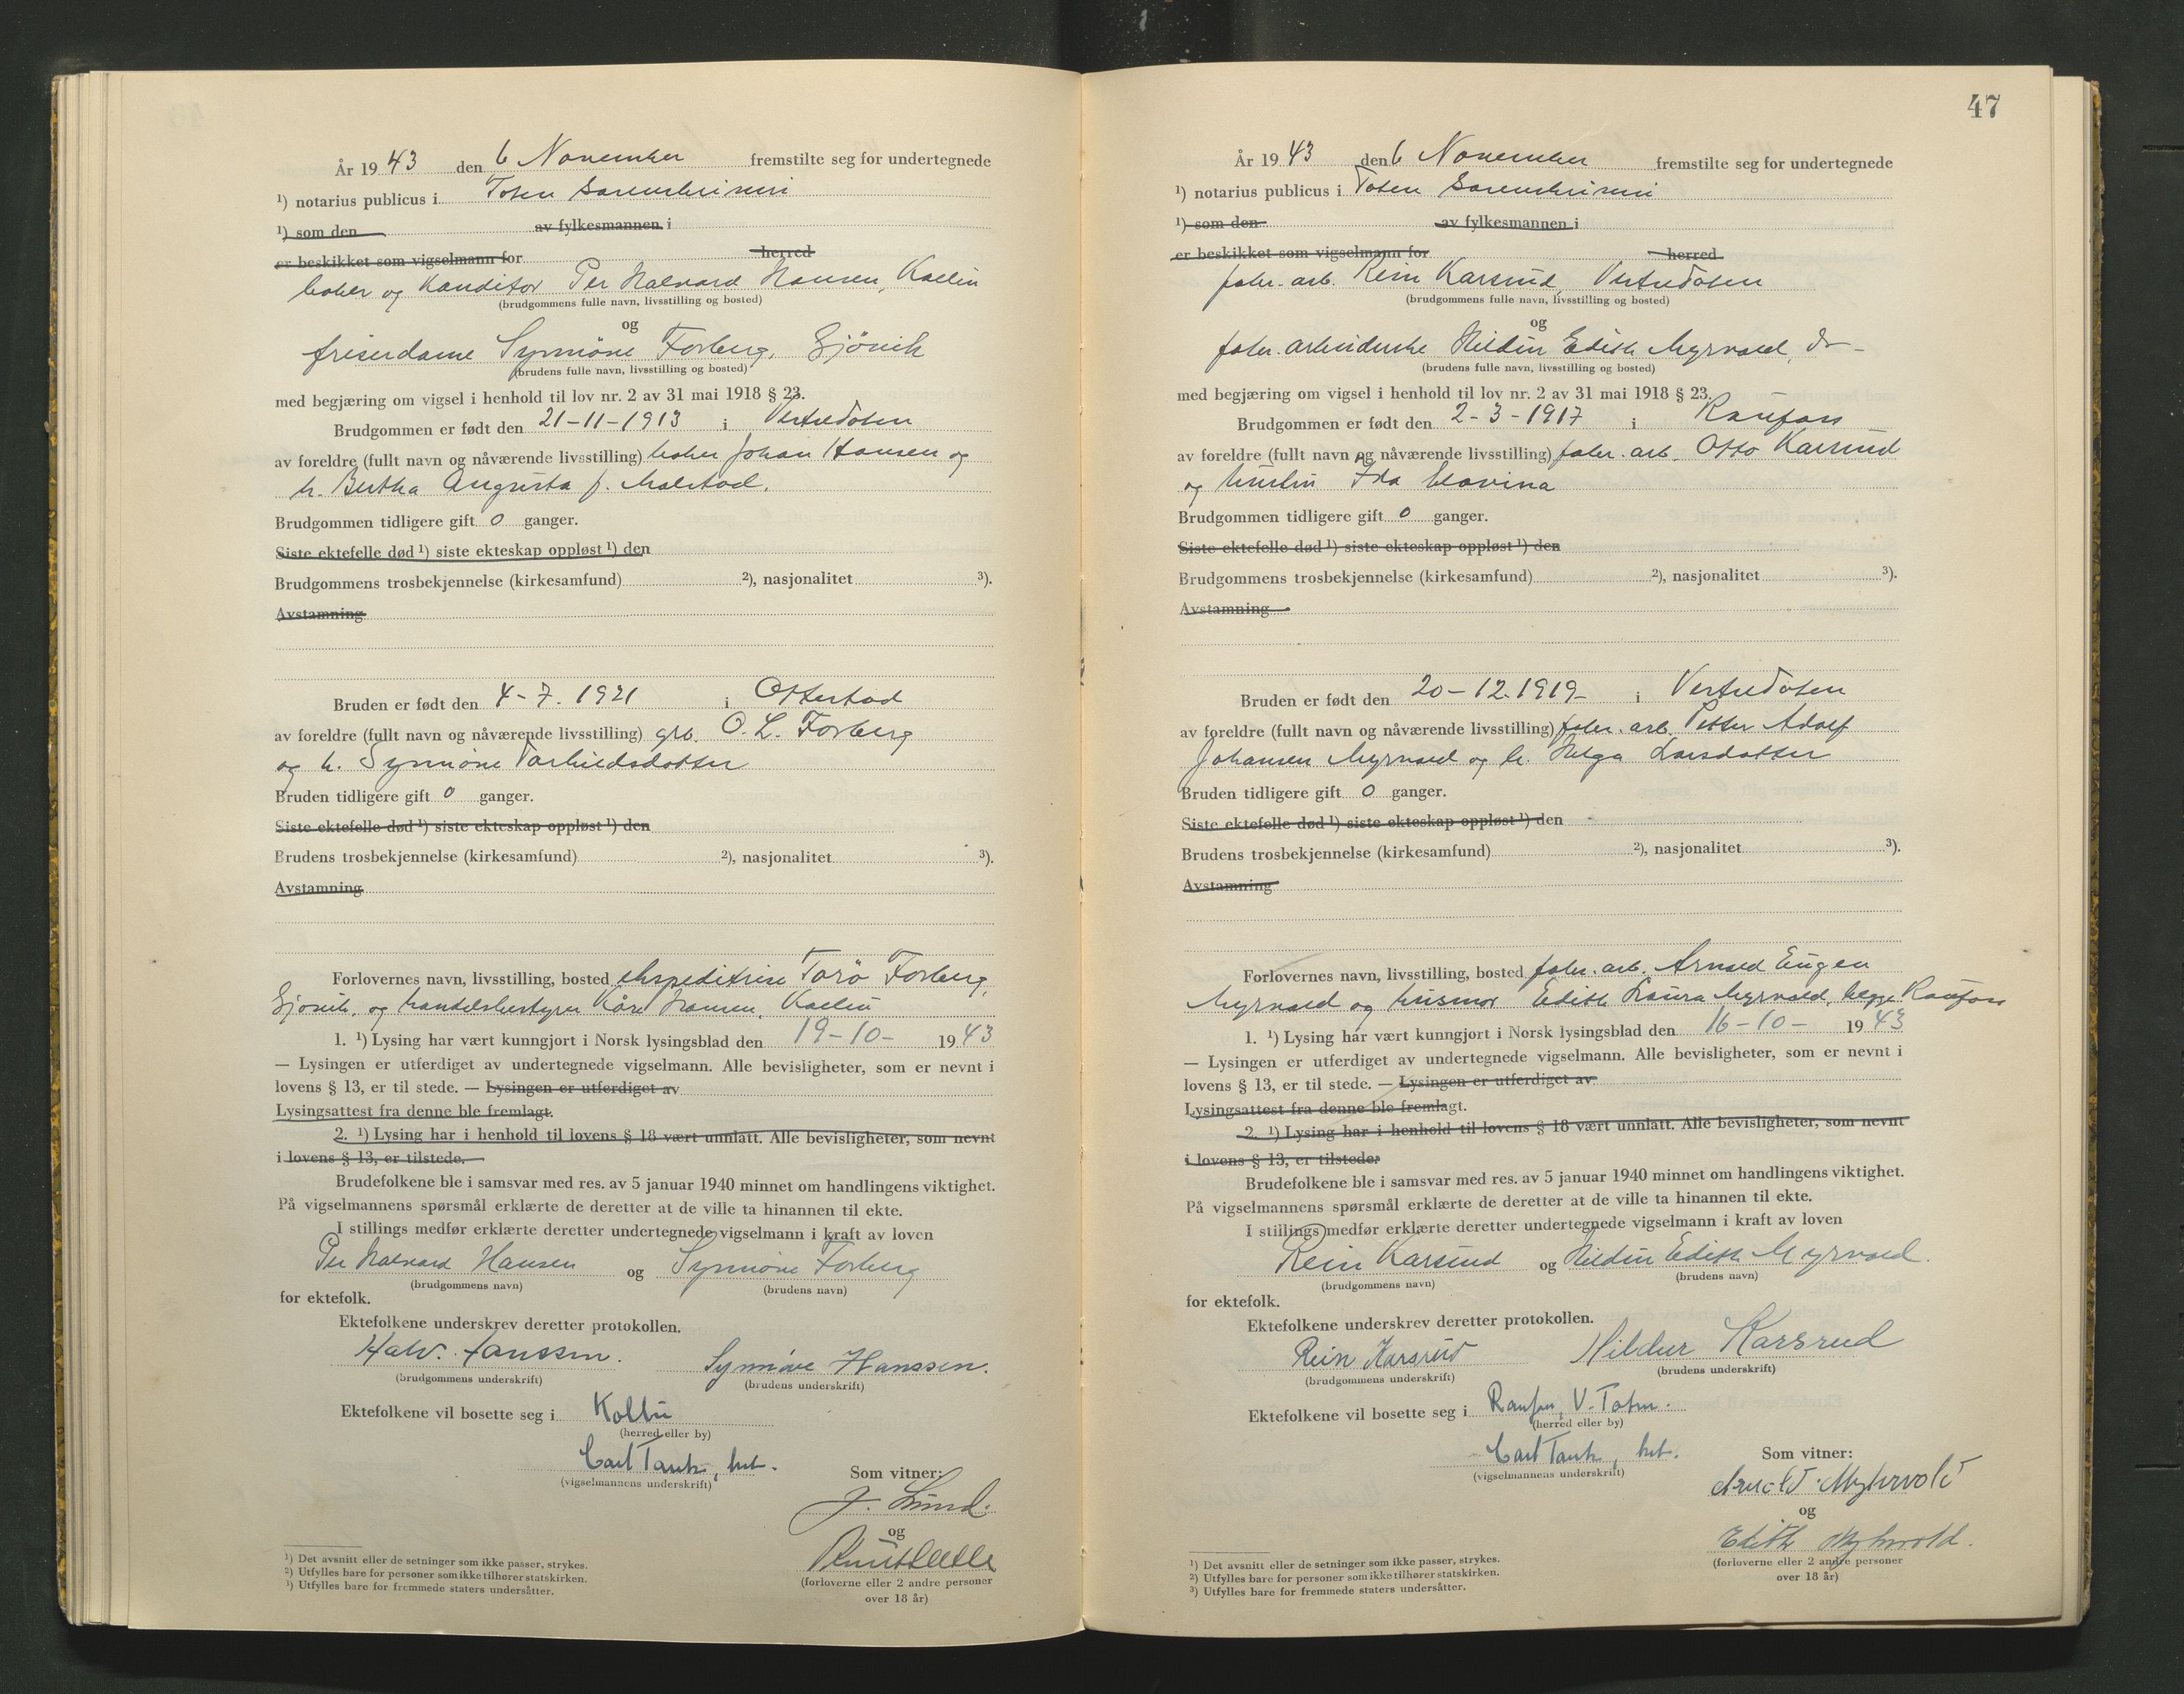 År 1943 den 6 November fremstilte seg for undertegnede
¹) notarius publicus i Toten Sorenskriveri
¹) som den av fylkesmannen i
er beskikket som vigselmann for herred
baker og Konditor Per Halvard Hansen, Kolbu
(brudgommens fulle navn, livsstilling og bosted)
og
friserdame Synnöve Forberg, Gjövik
(brudens fulle navn, livsstilling og bosted)
med begjæring om vigsel i henhold til lov nr. 2 av 31 mai 1918 § 23.
Brudgommen er født den 21-11-1913 i Vestre Toten
av foreldre (fullt navn og nåværende livsstilling) baker Johan Hansen og
h. Bertha Augusta f.
Brudgommen tidligere gift 0 ganger.
Siste ektefelle død ¹) siste ekteskap oppløst ¹) den
Brudgommens trosbekjennelse (kirkesamfund) ²), nasjonalitet ³).
Avstamning
Bruden er født den 4-7. 1921 i Otterstad
av foreldre (fullt navn og nåværende livsstilling) grb. O. L. Forberg
og h. Synnöve
Bruden tidligere gift 0 ganger.
Siste ektefelle død ¹) siste ekteskap oppløst ¹) den
Brudens trosbekjennelse (kirkesamfund) ²), nasjonalitet ³).
Avstamning
Forlovernes navn, livsstilling, bosted ekspeditrise Forberg,
Gjövik, og handelsbestyrer Kåre Hansen, Kolbu
1. ¹) Lysing har vært kunngjort i Norsk lysingsblad den 19-10- 1943
— Lysingen er utferdiget av undertegnede vigselmann. Alle bevisligheter, som er nevnt i
lovens § 13, er til stede. — Lysingen er utferdiget av
Lysingsattest fra denne ble fremlagt.
2. ¹) Lysing har i henhold til lovens § 18 vært unnlatt. Alle bevisligheter, som nevnt
i lovens § 13, er tilstede.
Brudefolkene ble i samsvar med res. av 5 januar 1940 minnet om handlingens viktighet.
På vigselmannens spørsmål erklærte de deretter at de ville ta hinannen til ekte.
I stillings medfør erklærte deretter undertegnede vigselmann i kraft av loven
Per Halvard Hansen og Synnöve Forberg
(brudgommens navn) (brudens navn)
for ektefolk.
Ektefolkene underskrev deretter protokollen.
Halv. Hanssen. Synnöve Hanssen.
(brudgommens underskrift) (brudens underskrift)
Ektefolkene vil bosette seg i Kolbu
(herred eller by)
Carl Tank,
(vigselmannens underskrift)
Som vitner:
J. Lund.
og
(forloverne eller 2 andre personer
over 18 år)
¹) Det avsnitt eller de setninger som ikke passer, strykes.
²) Utfylles bare for personer som ikke tilhører statskirken.
³) Utfylles bare for fremmede staters undersåtter.
47
År 1943 den 6 November fremstilte seg for undertegnede
¹) notarius publicus i Toten Sorenskriveri
¹) som den av fylkesmannen i
er beskikket som vigselmann for herred
fabr. arb. Rein Karsrud, Vestre Toten
(brudgommens fulle navn, livsstilling og bosted)
og
fabr. arbeiderske Hildur Edith Myrvold, do-
(brudens fulle navn, livsstilling og bosted)
med begjæring om vigsel i henhold til lov nr. 2 av 31 mai 1918 § 23.
Brudgommen er født den 2-3-1917 i Raufoss
av foreldre (fullt navn og nåværende livsstilling) fabr. arb. Otto Karsrud
og hustru Ida Elovina
Brudgommen tidligere gift 0 ganger.
Siste ektefelle død ¹) siste ekteskap oppløst ¹) den
Brudgommens trosbekjennelse (kirkesamfund) ²), nasjonalitet ³).
Avstamning
Bruden er født den 20-12-1919- i Vestre Toten
av foreldre (fullt navn og nåværende livsstilling) fabr. arb. Petter Adolf
Johansen Myrvold og h. Helga Larsdatter
Bruden tidligere gift 0 ganger.
Siste ektefelle død ¹) siste ekteskap oppløst ¹) den
Brudens trosbekjennelse (kirkesamfund) ²), nasjonalitet ³).
Avstamning
Forlovernes navn, livsstilling, bosted fabr. arb. Arnold Eugen
Myrvold og husmor Edith Laura Myrvold, begge Raufoss
1. ¹) Lysing har vært kunngjort i Norsk lysingsblad den 16-10- 1943
— Lysingen er utferdiget av undertegnede vigselmann. Alle bevisligheter, som er nevnt i
lovens § 13, er til stede. — Lysingen er utferdiget av
Lysingsattest fra denne ble fremlagt.
2. ¹) Lysing har i henhold til lovens § 18 vært unnlatt. Alle bevisligheter, som nevnt
i lovens § 13, er tilstede.
Brudefolkene ble i samsvar med res. av 5 januar 1940 minnet om handlingens viktighet.
På vigselmannens spørsmål erklærte de deretter at de ville ta hinannen til ekte.
I stillings medfør erklærte deretter undertegnede vigselmann i kraft av loven
Rein Karsrud og Hildur Edith Myrvold.
(brudgommens navn) (brudens navn)
for ektefolk.
Ektefolkene underskrev deretter protokollen.
Rein Karsrud Hildur Karsrud
(brudgommens underskrift) (brudens underskrift)
Ektefolkene vil bosette seg i Raufoss, V. Toten.
(herred eller by)
Carl Tank,
(vigselmannens underskrift)
Som vitner:
Arnold Myhrvold
og
Edith Myhrvold.
(forloverne eller 2 andre personer
over 18 år)
¹) Det avsnitt eller de setninger som ikke passer, strykes.
²) Utfylles bare for personer som ikke tilhører statskirken.
³) Utfylles bare for fremmede staters undersåtter.